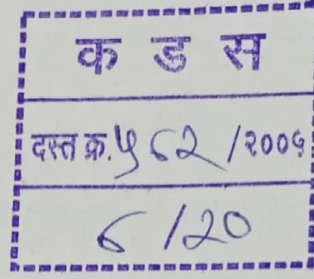 क ड स
दस्त क्र. ५६२ /२००६
६ /२०